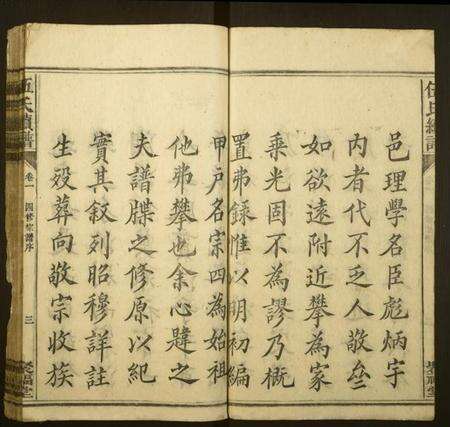 邑理學名臣彪炳宇
內者代不乏人敬叄
如欲遠附近攀為家
乘光固不為謬乃概
置弗錄惟以明初編
甲戶名宗四為始祖
他弗攀也余心韙之
夫譜牒之修原以紀
實其叙列昭穆詳註
生殁葬向敬宗收族
伍氏續譜
卷一
四修宗譜序
三